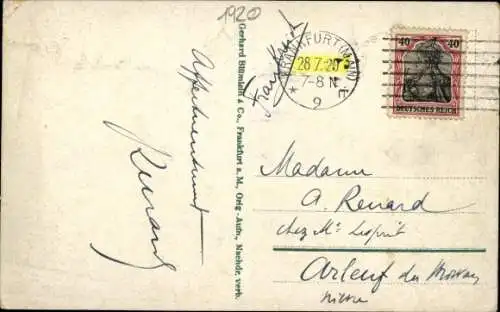 1920
Frankfurt
FRANKFURT (MAIN)
28.7.20
7-8 N
* 9 E
40 40
DEUTSCHES REICH
Affectueusement
Renard
Gerhard Blümlein & Co., Frankfurt a. M., Orig.-Aufn., Nachdr. verb.
Madame
A. Renard
chez Mr
Arleuf du Morvan
Nièvre